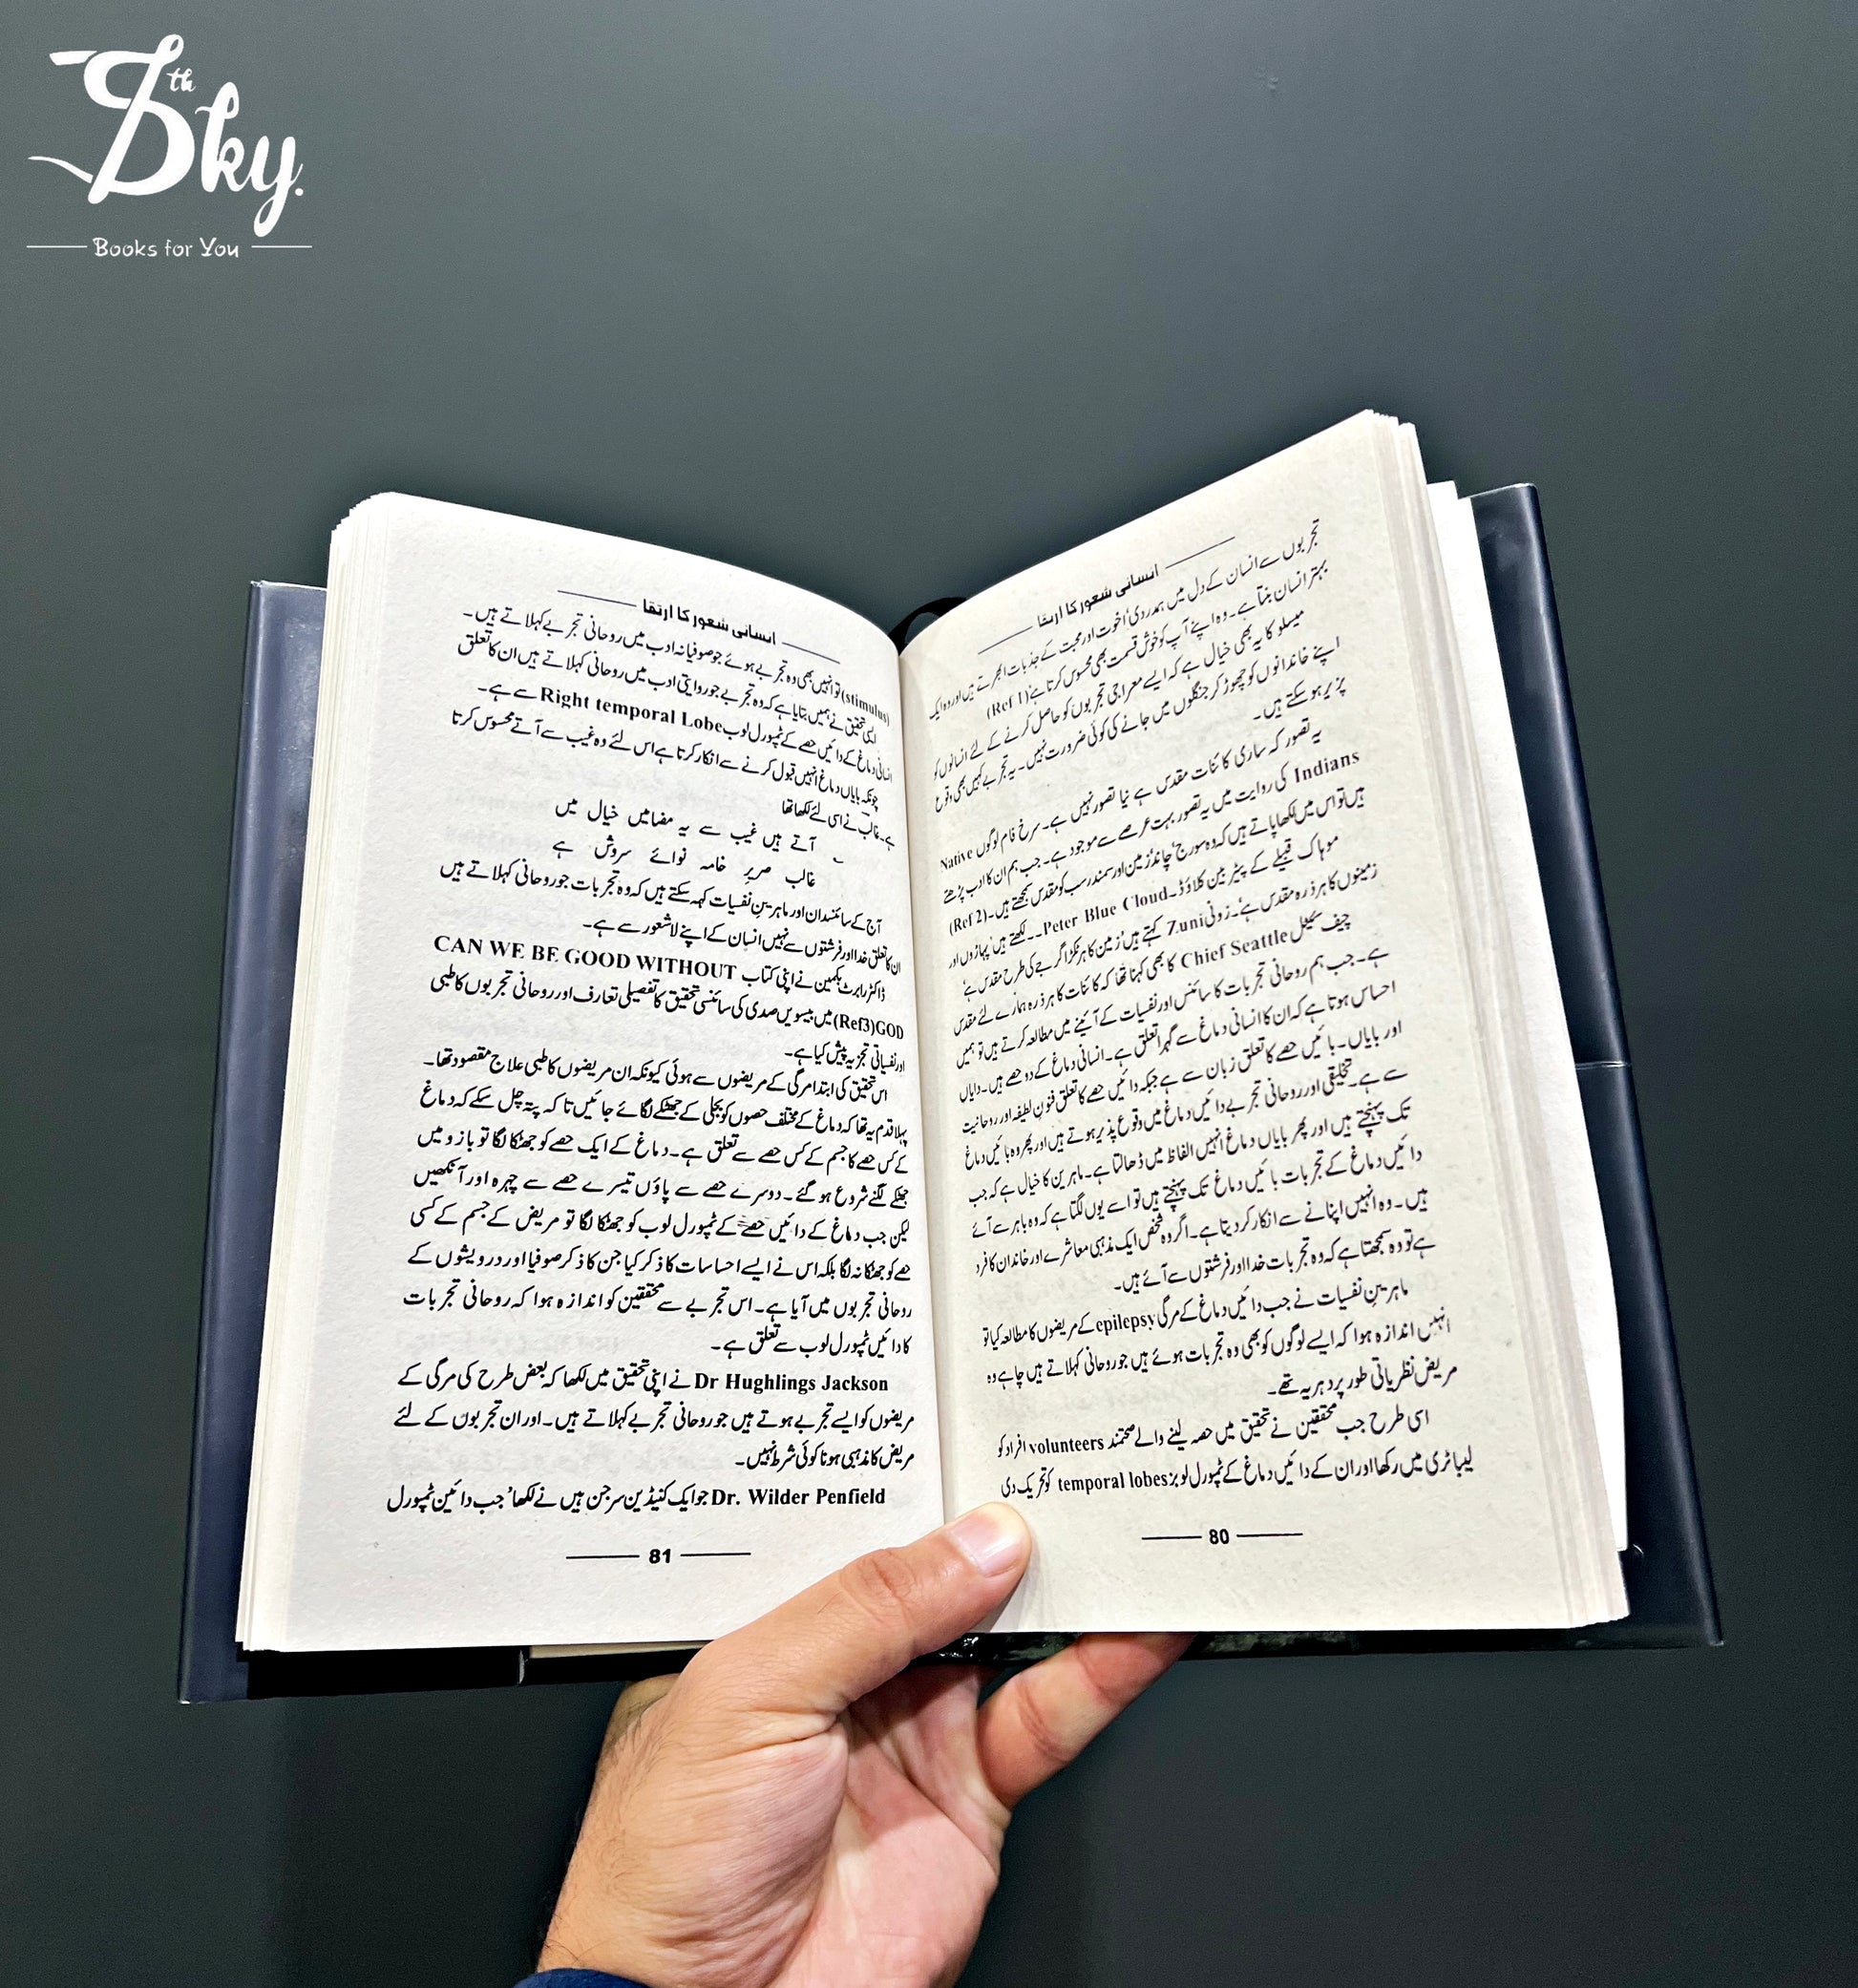 7th Sky.
Books for You
انسانی شعور کا ارتقا
تجربوں سے انسان کے دل میں ہمدردی‘ اخوت اور محبت کے جذبات ابھرتے ہیں اور وہ ایک
بہتر انسان بنتا ہے۔ وہ اپنے آپ کو خوش قسمت بھی محسوس کرتا ہے‘ (Ref 1)
میسلو کا یہ بھی خیال ہے کہ ایسے معراجی تجربوں کو حاصل کرنے کے لئے انسانوں کو
اپنے خاندانوں کو چھوڑ کر جنگلوں میں جانے کی کوئی ضرورت نہیں۔ یہ تجربے کہیں بھی وقوع
پزیر ہو سکتے ہیں۔
یہ تصور کہ ساری کائنات مقدس ہے نیا تصور نہیں ہے۔ سرخ فام لوگوں Native
Indians کی روایت میں یہ تصور بہت عرصے سے موجود ہے۔ جب ہم ان کا ادب پڑھتے
ہیں تو اس میں لکھا پاتے ہیں کہ وہ سورج‘ چاند‘ زمین اور سمندر سب کو مقدس سمجھتے ہیں۔ (Ref 2)
موہاک قبیلے کے پیٹر بلین کلاؤڈ۔ Peter Blue Cloud۔۔ لکھتے ہیں‘ پہاڑوں اور
زمینوں کا ہر ذرہ مقدس ہے‘۔ زونی Zuni کہتے ہیں‘ زمین کا ہر ٹکڑا گرجے کی طرح مقدس ہے‘
چیف سیٹل Chief Seattle کا بھی کہنا تھا کہ کائنات کا ہر ذرہ ہمارے لئے مقدس
ہے۔ جب ہم روحانی تجربات کا سائنس اور نفسیات کے آئینے میں مطالعہ کرتے ہیں تو ہمیں
احساس ہوتا ہے کہ ان کا انسانی دماغ سے گہرا تعلق ہے۔ انسانی دماغ کے دو حصے ہیں۔ دایاں
اور بایاں۔ بائیں حصے کا تعلق زبان سے ہے جبکہ دائیں حصے کا تعلق فنون لطیفہ اور روحانیت
سے ہے۔ تخلیقی اور روحانی تجربے دائیں دماغ میں وقوع پذیر ہوتے ہیں اور پھر وہ بائیں دماغ
تک پہنچتے ہیں اور پھر بایاں دماغ انہیں الفاظ میں ڈھالتا ہے۔ ماہرین کا خیال ہے کہ جب
دائیں دماغ کے تجربات بائیں دماغ تک پہنچتے ہیں تو اسے یوں لگتا ہے کہ وہ باہر سے آئے
ہیں۔ وہ انہیں اپنانے سے انکار کر دیتا ہے۔ اگر وہ شخص ایک مذہبی معاشرے اور خاندان کا فرد
ہے تو وہ سمجھتا ہے کہ وہ تجربات خدا اور فرشتوں سے آئے ہیں۔
ماہرینِ نفسیات نے جب دائیں دماغ کے مرگی epilepsy کے مریضوں کا مطالعہ کیا تو
انہیں اندازہ ہوا کہ ایسے لوگوں کو بھی وہ تجربات ہوئے ہیں جو روحانی کہلاتے ہیں چاہے وہ
مریض نظریاتی طور پر دہریہ تھے۔
اسی طرح جب محققین نے تحقیق میں حصہ لینے والے صحتمند volunteers افراد کو
لیباٹری میں رکھا اور ان کے دائیں دماغ کے ٹمپورل لوبز temporal lobes کو تحریک دی
80
انسانی شعور کا ارتقا
(stimulus) تو انہیں بھی وہ تجربے ہوئے جو صوفیانہ ادب میں روحانی تجربے کہلاتے ہیں۔
ایسی تحقیق نے ہمیں بتایا ہے کہ وہ تجربے جو روایتی ادب میں روحانی کہلاتے ہیں ان کا تعلق
انسانی دماغ کے دائیں حصے کے ٹمپورل لوب Right temporal Lobe سے ہے۔
چونکہ بایاں دماغ انہیں قبول کرنے سے انکار کرتا ہے اس لئے وہ غیب سے آتے محسوس کرتا
ہے۔ غالب نے اسی لئے لکھا تھا
آتے ہیں غیب سے یہ مضامیں خیال میں
غالب صریرِ خامہ نوائے سروش ہے
آج کے سائنسدان اور ماہرینِ نفسیات کہہ سکتے ہیں کہ وہ تجربات جو روحانی کہلاتے ہیں
ان کا تعلق خدا اور فرشتوں سے نہیں انسان کے اپنے لاشعور سے ہے۔
ڈاکٹر رابرٹ بکمین نے اپنی کتاب CAN WE BE GOOD WITHOUT
GOD(Ref3) میں بیسویں صدی کی سائنسی تحقیق کا تفصیلی تعارف اور روحانی تجربوں کا طبی
اور نفسیاتی تجزیہ پیش کیا ہے۔
اس تحقیق کی ابتدا مرگی کے مریضوں سے ہوئی کیونکہ ان مریضوں کا طبی علاج مقصود تھا۔
پہلا قدم یہ تھا کہ دماغ کے مختلف حصوں کو بجلی کے جھٹکے لگائے جائیں تا کہ پتہ چل سکے کہ دماغ
کے کس حصے کا جسم کے کس حصے سے تعلق ہے۔ دماغ کے ایک حصے کو جھٹکا لگا تو بازو میں
جھٹکے لگنے شروع ہو گئے۔ دوسرے حصے سے پاؤں تیسرے حصے سے چہرہ اور آنکھیں
لیکن جب دماغ کے دائیں حصے کے ٹمپورل لوب کو جھٹکا لگا تو مریض کے جسم کے کسی
حصے کو جھٹکا نہ لگا بلکہ اس نے ایسے احساسات کا ذکر کیا جن کا ذکر صوفیا اور درویشوں کے
روحانی تجربوں میں آیا ہے۔ اس تجربے سے محققین کو اندازہ ہوا کہ روحانی تجربات
کا دائیں ٹمپورل لوب سے تعلق ہے۔
Dr Hughlings Jackson نے اپنی تحقیق میں لکھا کہ بعض طرح کی مرگی کے
مریضوں کو ایسے تجربے ہوتے ہیں جو روحانی تجربے کہلاتے ہیں۔ اور ان تجربوں کے لئے
مریض کا مذہبی ہونا کوئی شرط نہیں۔
Dr. Wilder Penfield جو ایک کنیڈین سرجن ہیں نے لکھا‘ جب دائیں ٹمپورل
81